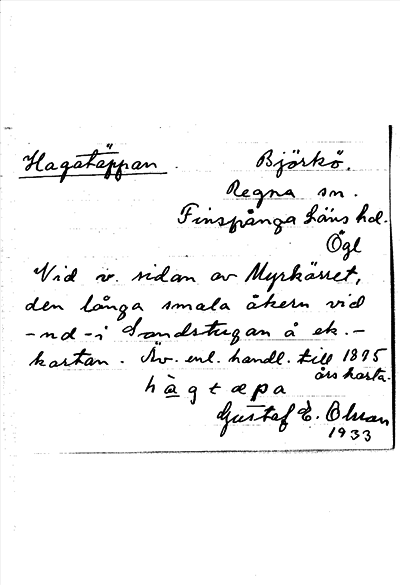 Hagatäppan
Björkö.
Regna sn.
Finspånga läns hd.
Ögl
Vid v. sidan av Myrkärret,
den långa smala åkern vid
-nd-i Sandstugan å ek.-
kartan. Äv. enl. handl. till 1875
års karta.
hàgtæpa
Gustaf E. Olsson
1933